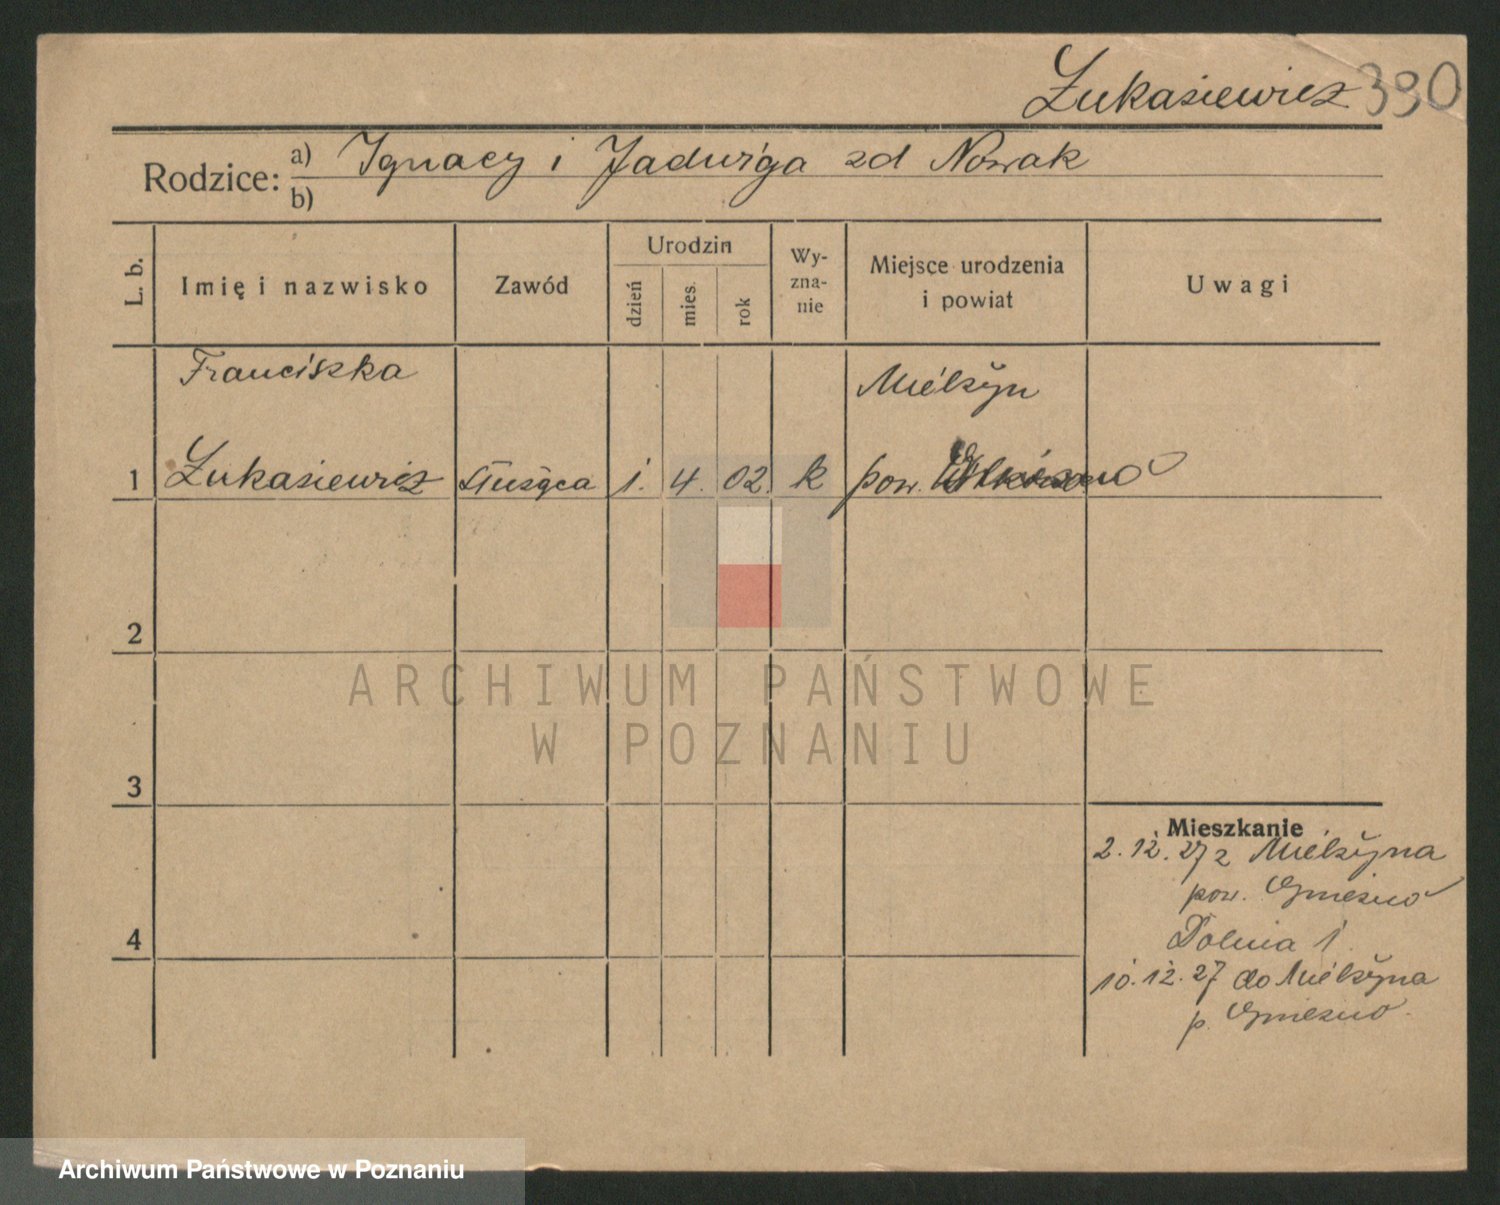 Łukasiewicz 390
Rodzice: a) Ignacy i Jadwiga zd Nowak
b)
L. b.
Imię i nazwisko
Zawód
Urodzin
dzień
mies.
rok
Wy-
zna-
nie
Miejsce urodzenia
i powiat
Uwagi
Franciszka
Mielżyn
1 Łukasiewicz służąca 1. 4. 02. k pow.
2
3
4
Mieszkanie
2.12.27 z Mielżyna
pow. Gniezno
Dolnia 1.
10.12.27 do Mielżyna
p. Gniezno.
ARCHIWUM PAŃSTWOWE
W POZNANIU
Archiwum Państwowe w Poznaniu